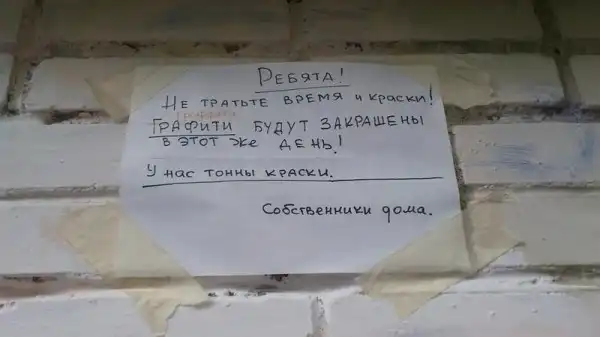 РЕБЯТА!
НЕ ТРАТЬТЕ ВРЕМЯ И КРАСКИ!
ГРАФИТИ БУДУТ ЗАКРАШЕНЫ
В ЭТОТ ЖЕ ДЕНЬ!
У НАС ТОННЫ КРАСКИ.
Собственники дома.